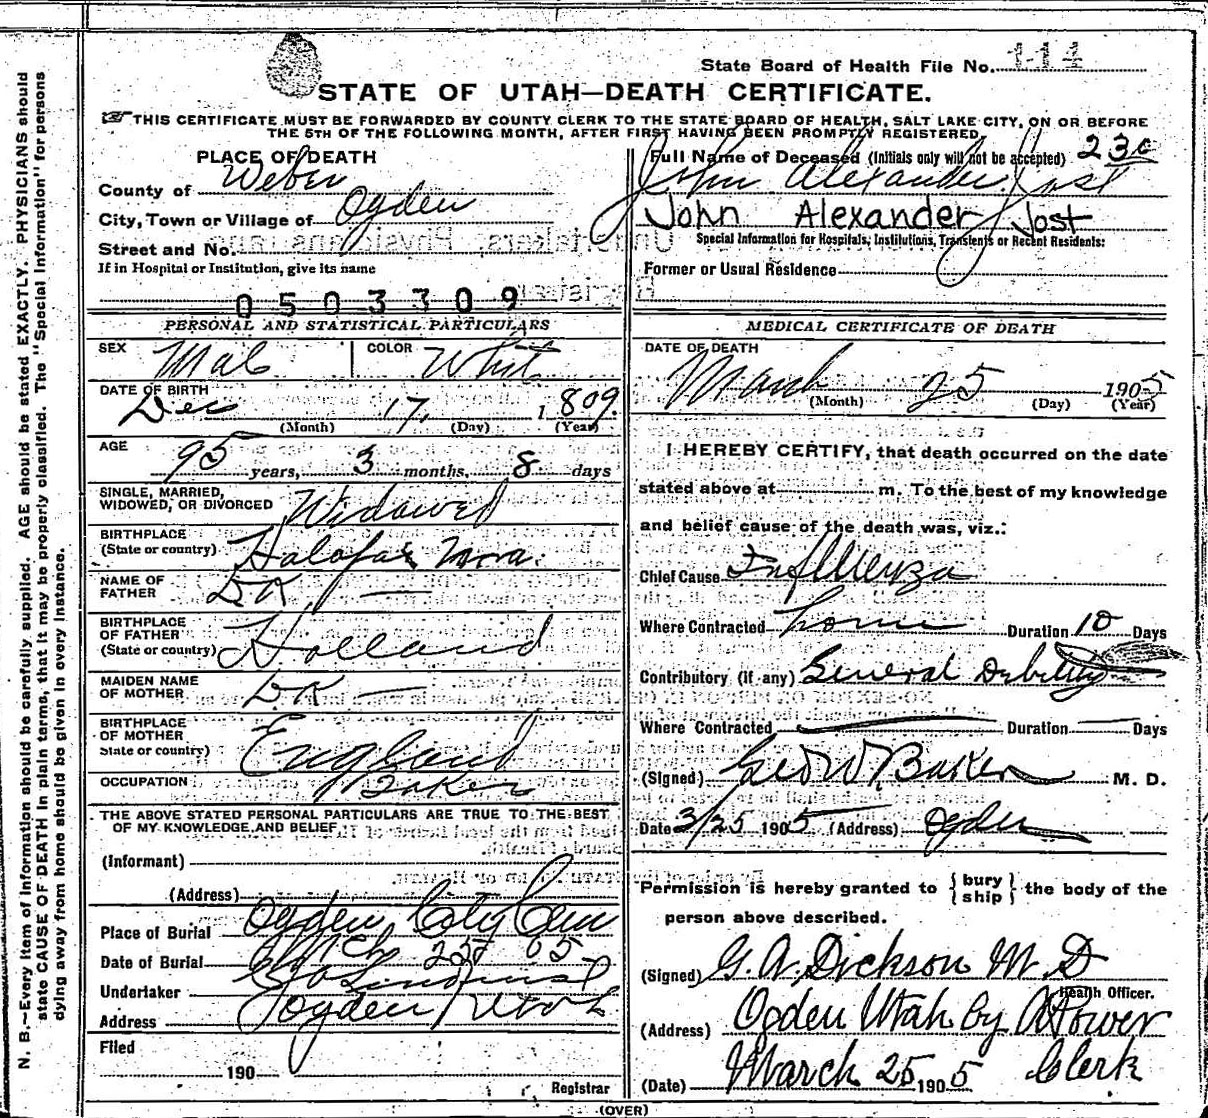 State Board of Health File No. 114
STATE OF UTAH—DEATH CERTIFICATE.
THIS CERTIFICATE MUST BE FORWARDED BY COUNTY CLERK TO THE STATE BOARD OF HEALTH, SALT LAKE CITY, ON OR BEFORE
THE 5TH OF THE FOLLOWING MONTH, AFTER FIRST HAVING BEEN PROMPTLY REGISTERED.
PLACE OF DEATH
County of Weber
City, Town or Village of Ogden
Street and No.
If in Hospital or Institution, give its name
0503309
Full Name of Deceased (Initials only will not be accepted) 230
John Alexander Jost
John Alexander Jost
Special Information for Hospitals, Institutions, Transients or Recent Residents:
Former or Usual Residence
PERSONAL AND STATISTICAL PARTICULARS
SEX Male COLOR White
DATE OF BIRTH
Dec 17, 1809.
(Month) (Day) (Year)
AGE
95 years, 3 months, 8 days
SINGLE, MARRIED,
WIDOWED, OR DIVORCED Widowed
BIRTHPLACE
(State or country) Halofax Nova.
NAME OF
FATHER DK —
BIRTHPLACE
OF FATHER
(State or country) Holland
MAIDEN NAME
OF MOTHER DK —
BIRTHPLACE
OF MOTHER
State or country) England
OCCUPATION Baker
THE ABOVE STATED PERSONAL PARTICULARS ARE TRUE TO THE BEST
OF MY KNOWLEDGE AND BELIEF
(Informant)
(Address)
Place of Burial Ogden City Cem
Date of Burial Mch 25 05
Undertaker
Address Ogden Utah
Filed
190
Registrar
MEDICAL CERTIFICATE OF DEATH
DATE OF DEATH
March 25 1905
(Month) (Day) (Year)
I HEREBY CERTIFY, that death occurred on the date
stated above at m. To the best of my knowledge
and belief cause of the death was, viz.:
Chief Cause Influenza
Where Contracted home Duration 10 Days
Contributory (if any) General Debility
Where Contracted Duration Days
(Signed) Geo W Baker M. D.
Date 3/25 1905 (Address) Ogden
Permission is hereby granted to {bury
ship} the body of the
person above described.
(Signed) G. A. Dickson M. D
Health Officer.
(Address) Ogden Utah by Power
(Date) March 25 1905 Clerk
(OVER)
N. B.—Every item of information should be carefully supplied. AGE should be stated EXACTLY. PHYSICIANS should
state CAUSE OF DEATH in plain terms, that it may be properly classified. The "Special Information" for persons
dying away from home should be given in every instance.